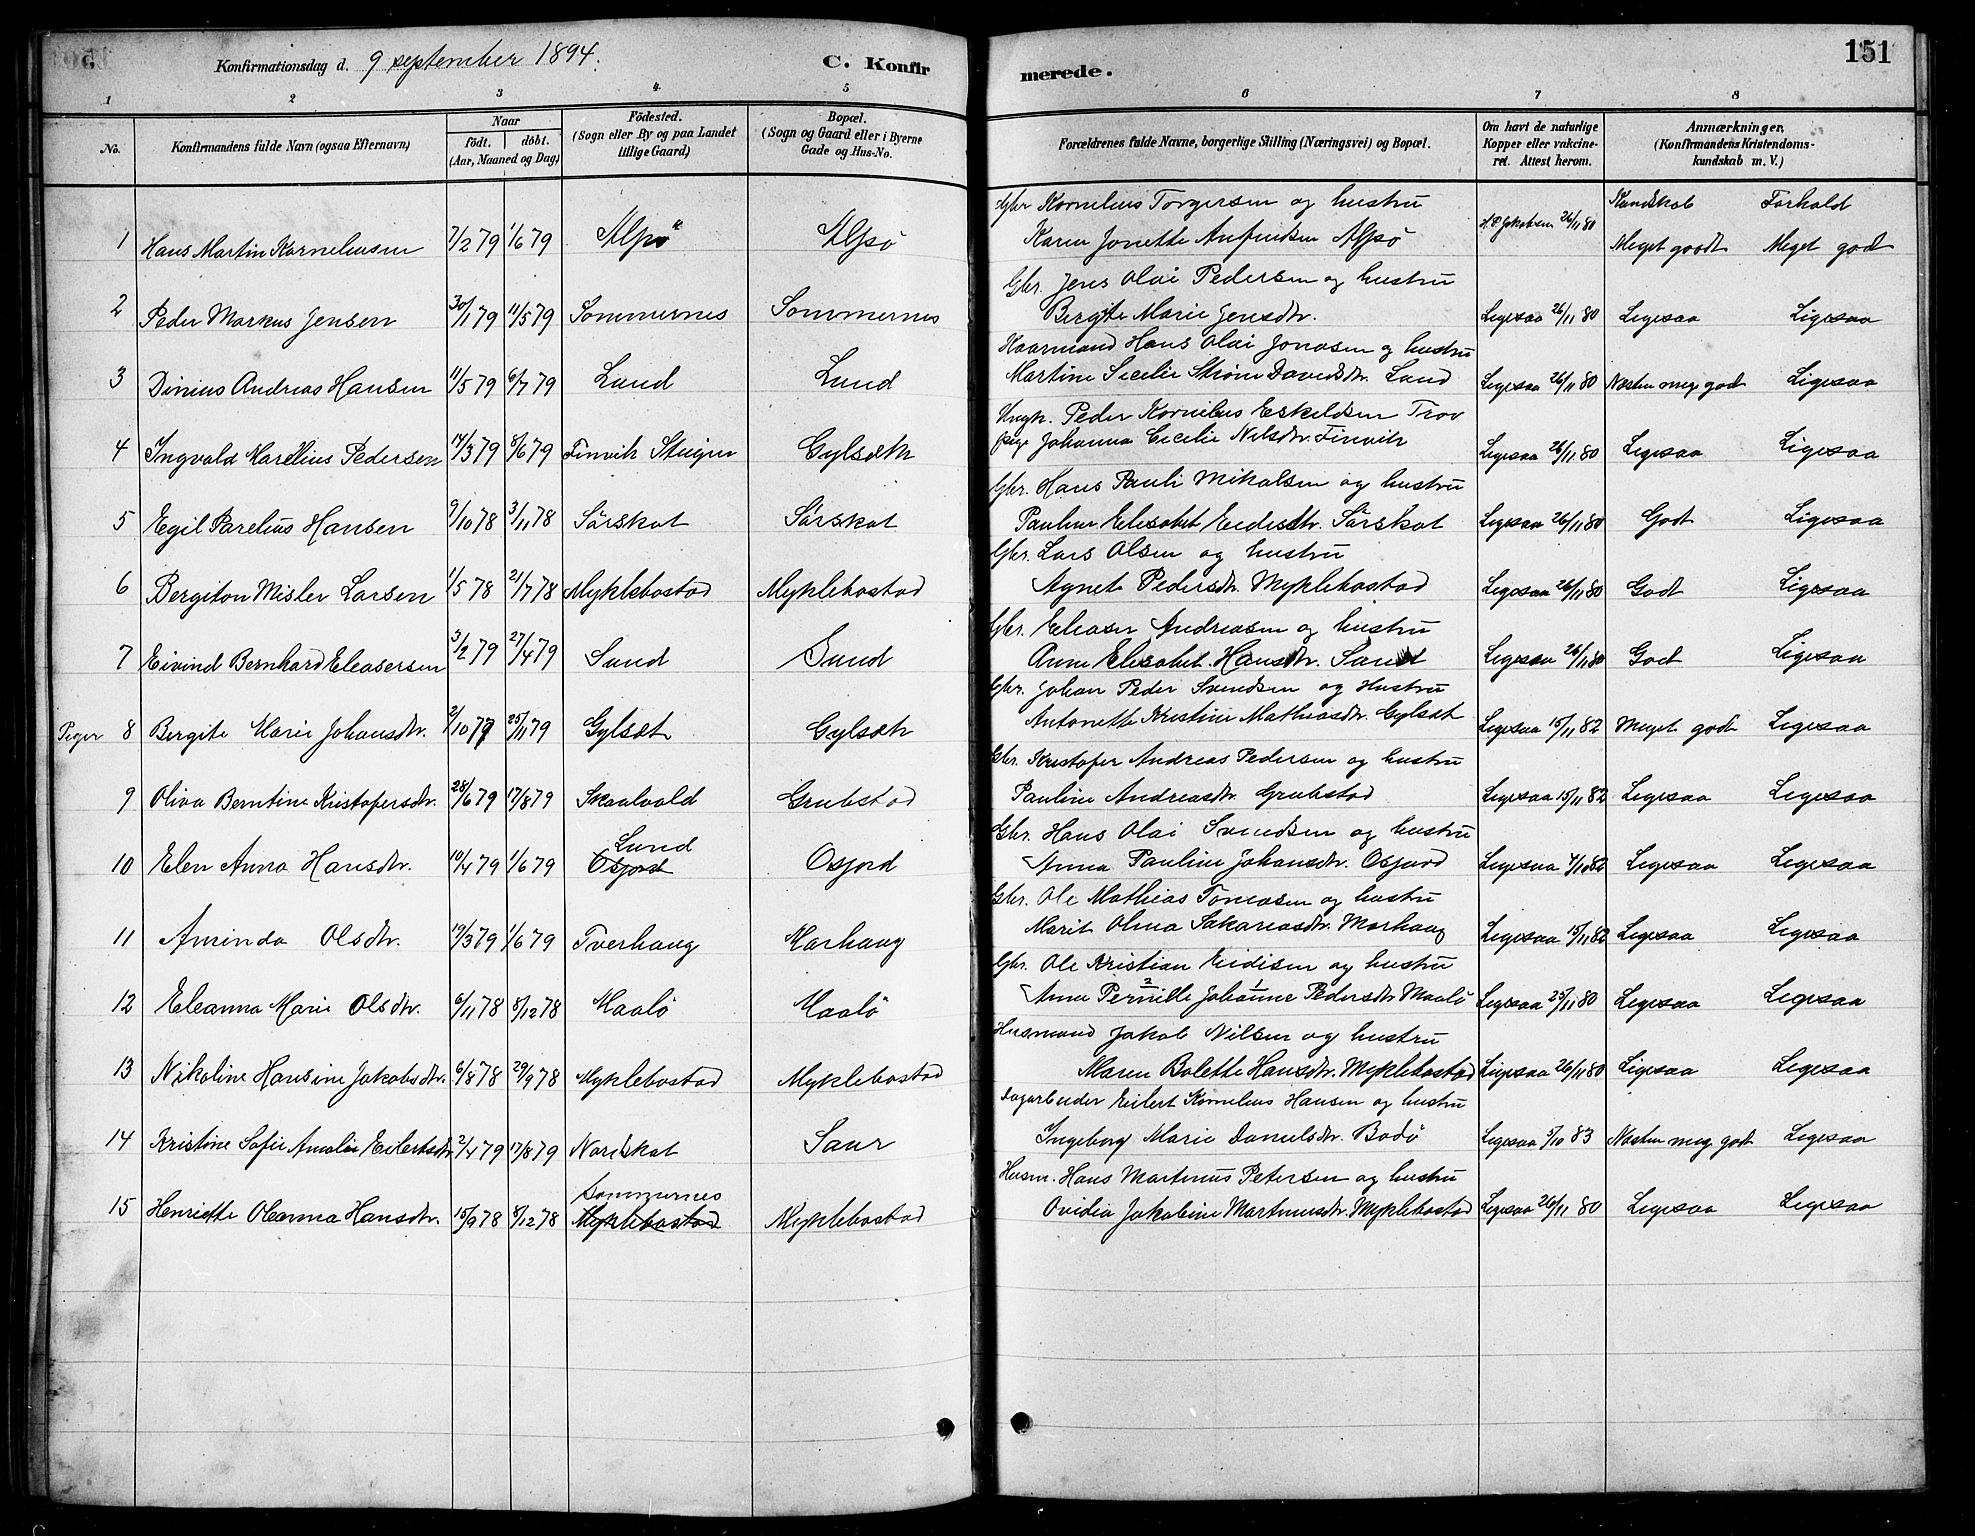 Konfirmationsdag d. 9 september 1894.
C. Konfir
merede.
151
1 2 3 4 5 6 7 8
No.
Konfirmandens fulde Navn (ogsaa Efternavn)
Naar
födt. döbt.
(Aar, Maaned og Dag)
Födested.
(Sogn eller By og paa Landet
tillige Gaard)
Bopæl.
(Sogn og Gaard eller i Byerne
Gade og Hus-No.
Forældrenes fulde Navne, borgerlige Stilling (Næringsvei) og Bopæl.
Om havt de naturlige
Kopper eller vakcine-
ret. Attest herom.
Anmærkninger.
(Konfirmandens Kristendoms-
kundskab m. V.)
Gbr Kornelius Torgersen og hustru Kundskab Forhold
1 Hans Martin Korneliusen 7/2 79 1/6 79 Alpsö Alpsö Karen Jonette Anfindsen Alpsö H.P. Jakobsen 26/11 80 Meget godt Meget god
Gbr. Jens Olai Pedersen og hustru
2 Peder Markus Jensen 30/1 79 11/5 79 Sommernes Sommernes Bergite Marie Jensdtr. Ligesaa 26/11 80 Ligesaa Ligesaa
Kaarmand Hans Olai Jonasen og hustru
3 Dinius Andreas Hansen 11/5 79 6/7 79 Lund Lund Martine Secilie Ström Davidsdtr. Lund Ligesaa 26/11 80 Næsten meg god Ligesaa
Ungk. Peder Kornelius Eskeldsen Trov
4 Ingvald Marelius Pedersen 14/3 79 8/6 79 Finvik Steigen Gylsæth pige Johanna Cecilie Nilsdtr. Finvik Ligesaa 26/11 80 Ligesaa Ligesaa
Gbr. Hans Pauli Mikalsen og hustru
5 Egil Parelius Hansen 9/10 78 3/11 78 Sörskot Sörskot Pauline Elisabet Eidisdtr. Sörskot Ligesaa 26/11 80 Godt Ligesaa
Gbr. Lars Olsen og hustru
6 Bergiton Misler Larsen 1/5 78 21/7 78 Myklebostad Myklebostad Agnet Pedersdtr. Myklebostad Ligesaa 26/11 80 Godt Ligesaa
Gbr. Eleaser Andreasen og hustru
7 Eivind Bernhard Eleasersen 3/2 79 27/4 79 Sund Sund Anne Elisabet Hansdtr. Sund Ligesaa 26/11 80 God Ligesaa
Gbr. Johan Peder Svendsen og Hustru
Piger 8 Bergite Marie Johansdtr. 2/10 79 25/11 79 Gylsæt Gylsæth Antonette Kristine Mathiasdtr. Gylsæt Ligesaa 15/11 82 Meget godt Ligesaa
Gbr. Kristofer Andreas Pedersen og hustru
9 Oliva Berntine Kristofersdtr. 28/6 79 17/8 79 Skaalvold Grubstad Pauline Andreasdtr. Grubstad Ligesaa 15/11 82 Ligesaa Ligesaa
Lund
Gbr. Hans Olai Svendsen og hustru
10 Elen Anna Hansdtr. 10/4 79 1/6 79 Osjord Osjord Anna Pauline Johansdtr. Osjord Ligesaa 4/10 82 Ligesaa Ligesaa
Gbr. Ole Mathias Tomasen og hustru
11 Aminda Olsdtr. 19/3 79 1/6 79 Tverhaug Marhaug Marit Olina Sakariasdtr. Marhaug Ligesaa 15/11 82 Ligesaa Ligesaa
Gbr. Ole Kristian Eidisen og hustru
12 Eleanna Marie Olsdtr. 6/11 78 8/12 78 Maalö Maalö Anne Pernille Johanne Pedersdtr Maalö Ligesaa 25/11 80 Ligesaa Ligesaa
Husmand Jakob Nilsen og hustru
13 Nikoline Hansine Jakobsdtr. 6/8 78 29/9 78 Myklebostad Myklebostad Maren Bolette Hansdtr. Myklebostad Ligesaa 26/11 80 Ligesaa Ligesaa
Dagarbeider Eilert Kornelius Hansen og hustru
14 Kristine Sofie Amalie Eilertsdtr 2/4 79 17/8 79 Nordskot Saur Ingeborg Marie Danielsdtr. Bodö Ligesaa 5/10 83 Næsten meg godt Ligesaa
Sommernes
Husm. Hans Martinus Petersen og hustru
15 Henriette Oleanna Hansdtr. 15/9 78 8/12 78 Myklebostad Myklebostad Ovidia Jakobine Martinusdtr. Myklebostad Ligesaa 26/11 80 Ligesaa Ligesaa